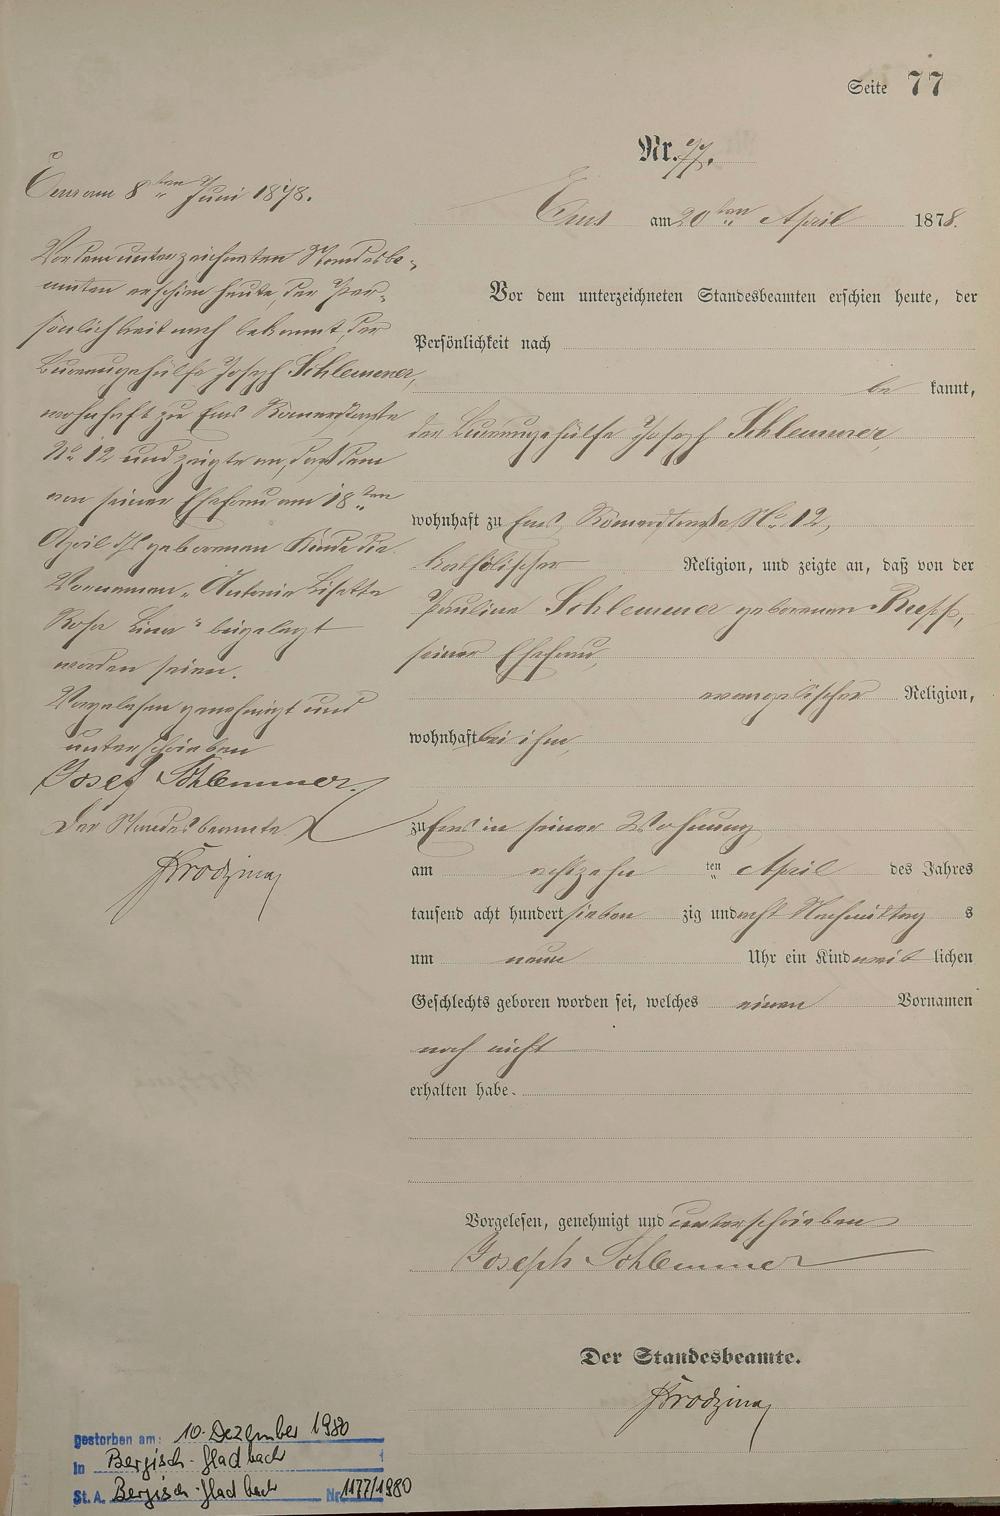 Seite 77
Nr. 77.
Ems am 20ten April 1878.
Vor dem unterzeichneten Standesbeamten erschien heute, der
Persönlichkeit nach
be kannt,
der Bureaugehülfe Joseph Schlemmer,
wohnhaft zu Ems, Römerstraße No. 12,
katholischer Religion, und zeigte an, daß von der
Pauline Schlemmer geborenen
seiner Ehefrau,
evangelischer Religion,
wohnhaft bei ihm,
zu Ems in seiner Wohnung
am achtzehn ten April des Jahres
tausend acht hundert sieben zig und acht Nachmittag s
um neun Uhr ein Kind weib lichen
Geschlechts geboren worden sei, welches einen Vornamen
noch nicht
erhalten habe.
Vorgelesen, genehmigt und unterschrieben
Joseph Schlemmer
Der Standesbeamte.
Ems am 8ten Juni 1878.
Vor dem unterzeichneten Standesbe-
amten erschien heute, der Per-
sönlichkeit nach bekannt, der
Bureaugehülfe Joseph Schlemmer,
wohnhaft zu Ems Römerstraße
No 12 und zeigte an, daß dem
von seiner Ehefrau am 18ten
April geborenen Kinde die
Vornamen „Antonie Lisette
Rosa Lina" beigelegt
worden seien.
Vorgelesen genehmigt und
unterschrieben
Josef Schlemmer.
Der Standesbeamte
gestorben am: 10. Dezember 1980
in Bergisch-Gladbach
St.A. Bergisch-Gladbach Nr. 1177/1980